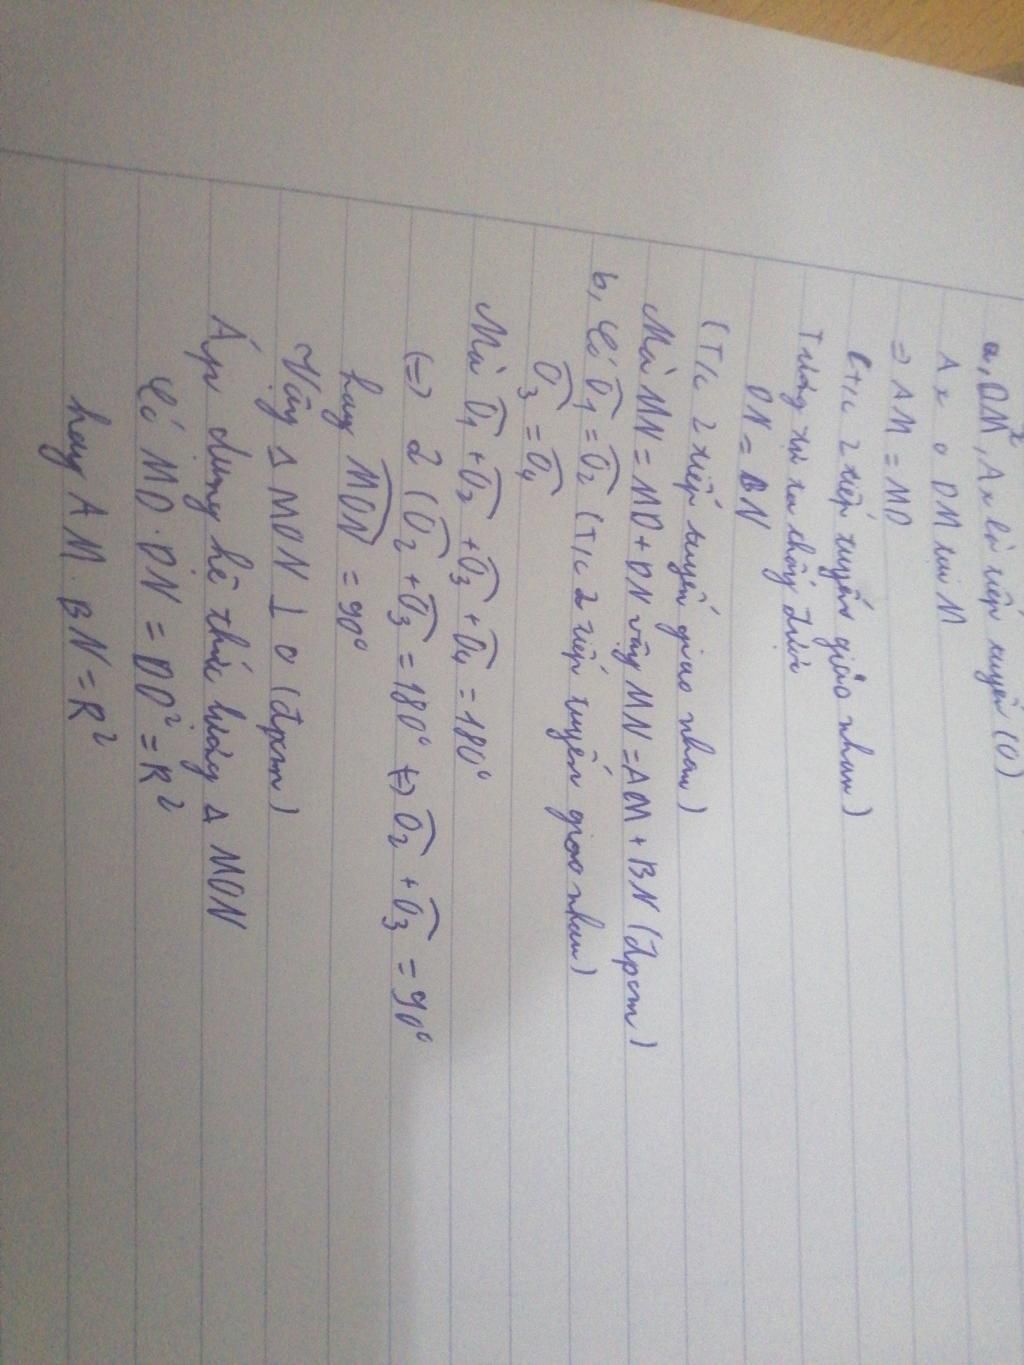 a, DM, Ax là tiếp tuyến (O)
Ax ∩ DM tại M
=> AM = MD
(T/c 2 tiếp tuyến giao nhau)
Tương tự ta chứng được
DN = BN
(T/c 2 tiếp tuyến giao nhau)
Mà MN = MD + DN vậy MN = AM + BN (đpcm)
b, Có Ô1 = Ô2 (T/c 2 tiếp tuyến giao nhau)
Ô3 = Ô4
Mà Ô1 + Ô2 + Ô3 + Ô4 = 180°
(=) 2 (Ô2 + Ô3 = 180° (=) Ô2 + Ô3 = 90°
hay MÔN = 90°
Vậy Δ MON ⊥ O (đpcm)
Áp dụng hệ thức lượng Δ MON
Có MD . DN = DO² = R²
hay AM . BN = R²